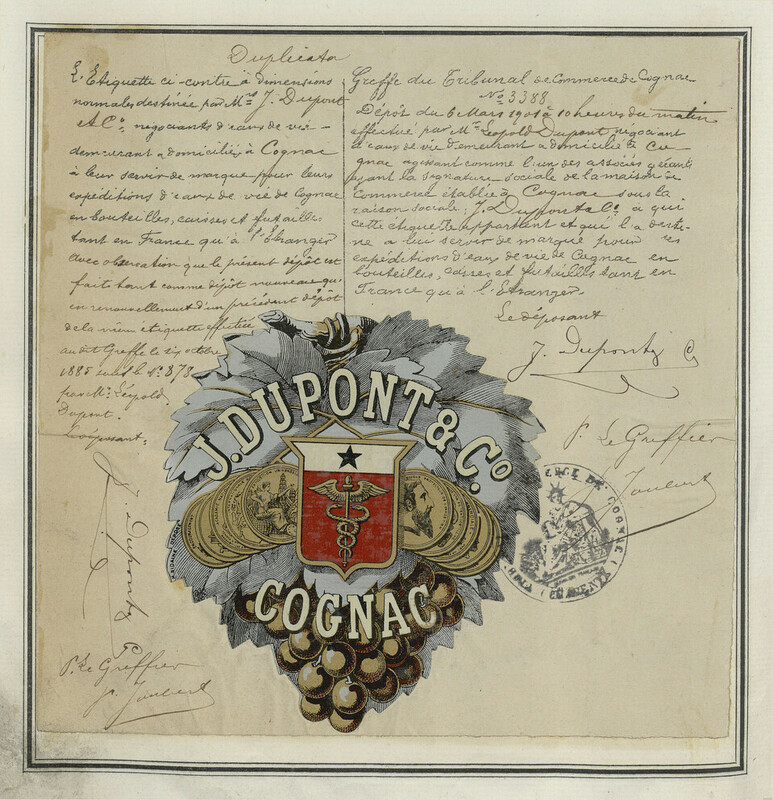 Duplicata
L'Etiquette ci-contre à dimensions
normales destinée par Mrs J. Dupont
& Co, negociants d'eaux de vie
demeurant & domiciliés à Cognac
à leur servir de marque pour leurs
expéditions d'eaux de vie de Cognac
en bouteilles, caisses et futailles
tant en France qu'à l'Etranger
avec observation que le présent dépôt est
fait tant comme dépôt nouveau qu'
en renouvellement d'un précédent dépôt
de la même etiquette effectué
au dit Greffe le six octobre
1885 sous le No 878
par Mr Léopold
Dupont.
Le déposant:
J. Dupont & Co
P. Le Greffier
Joubert
Greffe du Tribunal de Commerce de Cognac
No 3388
Dépôt du 6 Mars 1901 à 10 heures du matin
effectué par Mr Léopold Dupont négociant
d'eaux de vie demeurant & domicilié à Co
gnac agissant comme l'un des associés gérants
ayant la signature sociale de la maison de
commerce établie à Cognac sous la
raison sociale: J. Dupont & Co, à qui
cette étiquette appartient et qui l'a desti-
né a lui servir de marque pour ses
expéditions d'eaux de vie de Cognac en
bouteilles, caisses et futailles tant en
France qu'à l'Etranger.
Le déposant
J. Dupont & Co
P. Le Greffier
Joubert
J. DUPONT & Co
COGNAC
DE COGNAC